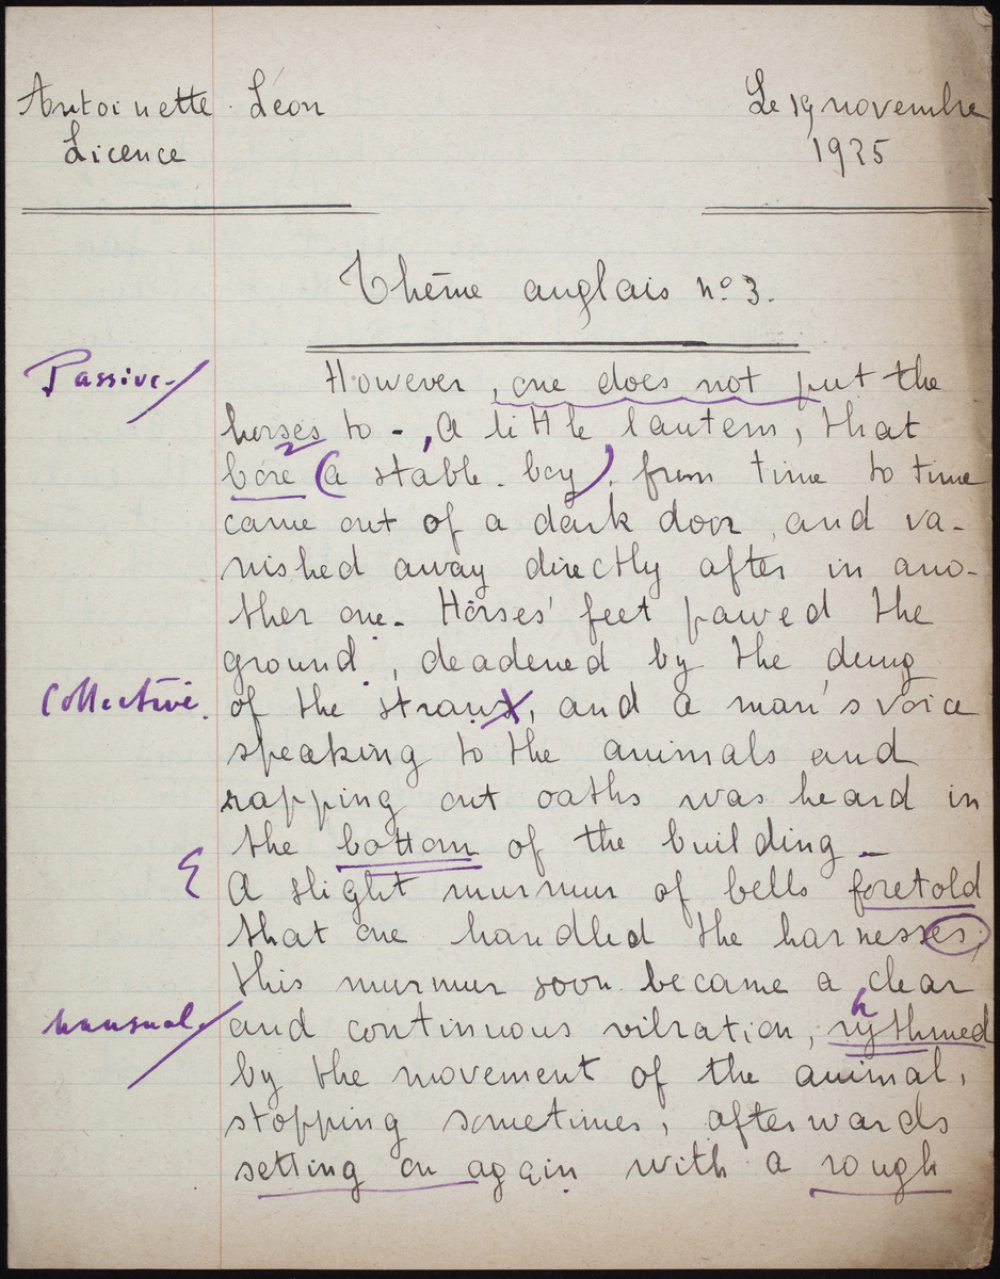 Antoinette Léon
Le 19 novembre
Licence
1925
Thème anglais nº 3.
Passive
However, one does not put the
horses to - , A little lantern, that
bore (a stable-boy), from time to time
came out of a dark door, and va-
nished away directly after in ano-
ther one. Horses' feet pawed the
ground, deadened by the dung
Collective.
of the straws, and a man's voice
speaking to the animals and
rapping out oaths was heard in
the bottom of the building -
A slight murmur of bells foretold
that one handled the harnesses;
this murmur soon became a clear
h
unusual.
and continuous vibration, rythmed
by the movement of the animal,
stopping sometimes, afterwards
setting on again with a rough